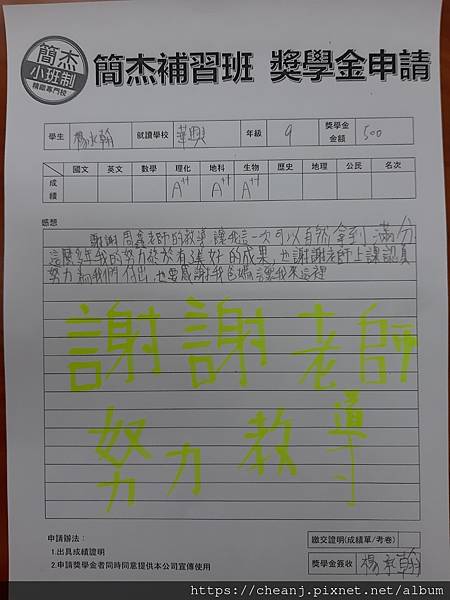 簡杰
小班制
精緻專門校
簡杰補習班 獎學金申請
學生 楊永翰 就讀學校 華興 年級 9 獎學金金額 500
國文 英文 數學 理化 地科 生物 歷史 地理 公民 名次
成績 A++ A++ A++
感想
謝謝周鑫老師的教導,讓我這一次可以自然拿到滿分
這麼多年我的努力終於有達好的成果,也謝謝老師上課認真
努力為我們付出,也要感謝我爸媽讓我來這裡
謝謝老師
努力教導
申請辦法:
1.出具成績證明
2.申請獎學金者同時同意提供本公司宣傳使用
繳交證明(成績單/考卷)
獎學金簽收 楊永翰
https://cheanj.pixnet.net/album